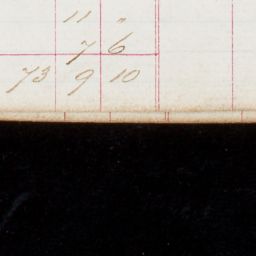 11 "
7 6
73 9 10